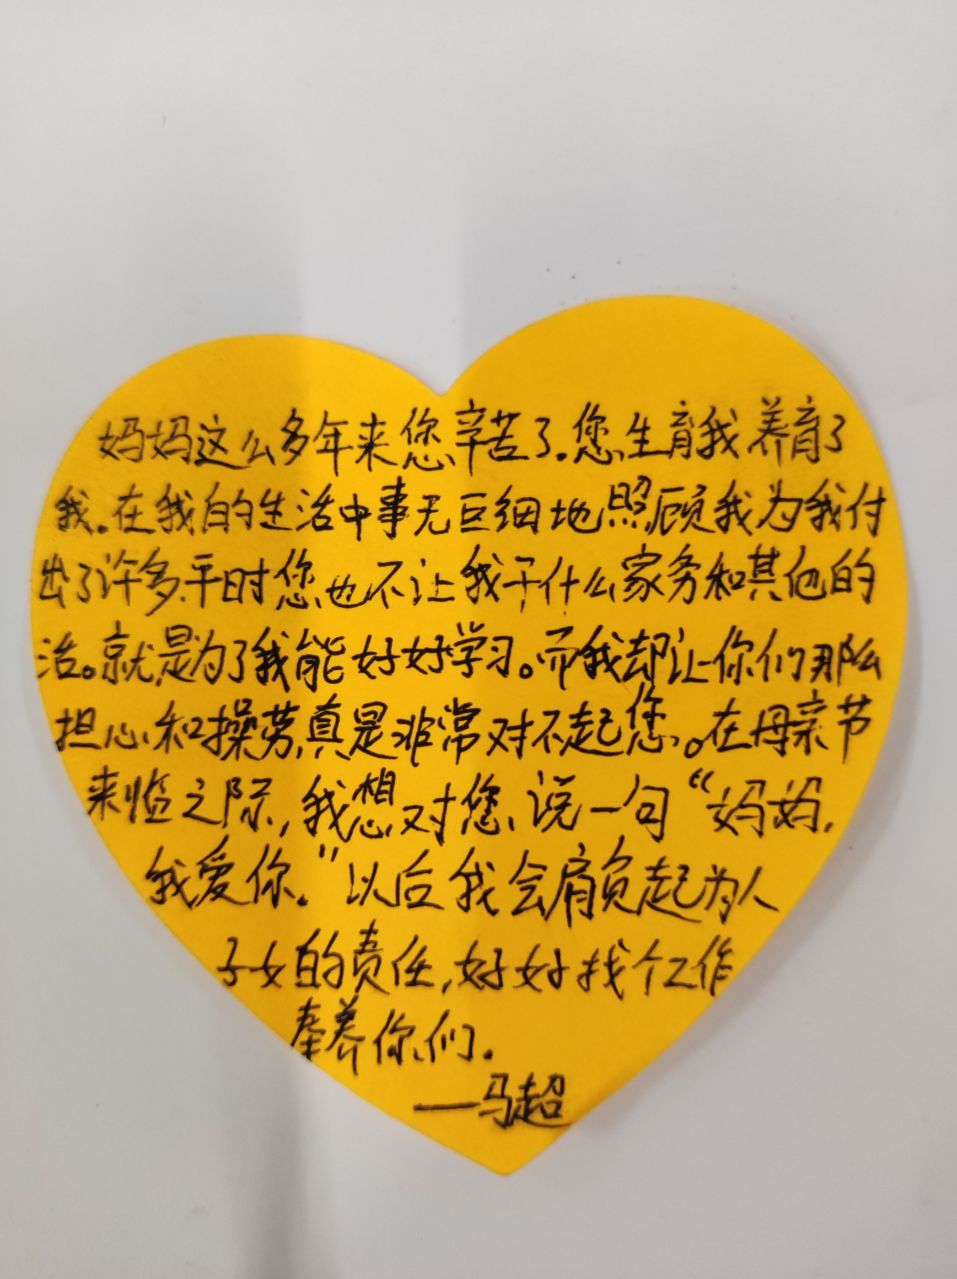 妈妈这么多年来您辛苦了.您生育我养育了
我.在我的生活中事无巨细地照顾我为我付
出了许多.平时您也不让我干什么家务和其他的
活。就是为了我能好好学习。而我却让你们那么
担心和操劳,真是非常对不起您。在母亲节
来临之际,我想对您说一句“妈妈,
我爱你.”以后我会肩负起为人
子女的责任,好好找个工作
奉养你们.
——马超